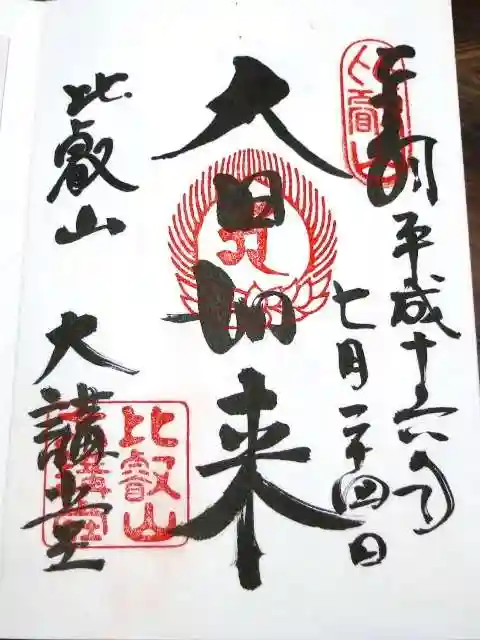 比叡山
平成十六年
七月二十四日
大日如来
比叡山
大講堂
比叡山
大講堂